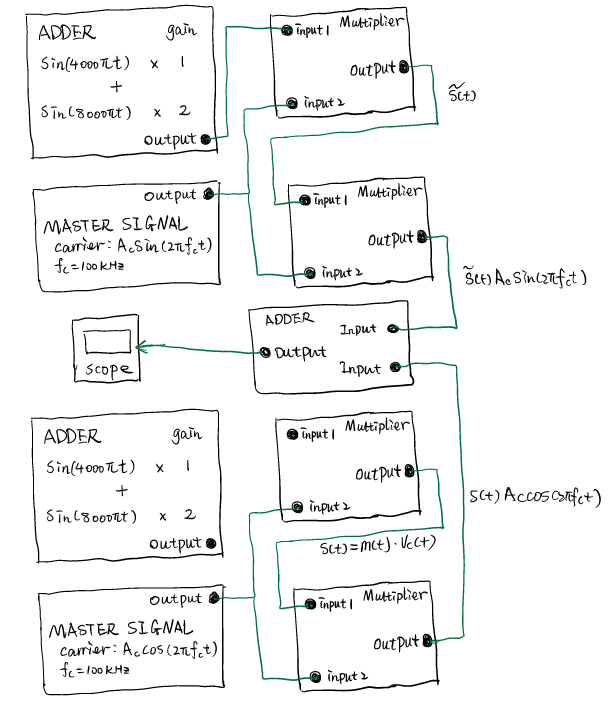 ADDER gain
Sin(4000πt) × 1
+
Sin(8000πt) × 2
output
input1 Multiplier
output
input2
s̃(t)
output
MASTER SIGNAL
carrier: Ac Sin(2πfct)
fc=100kHz
input1 Multiplier
output
input2
s̃(t) Ac Sin(2πfct)
ADDER
Input
output
Input
scope
ADDER gain
Sin(4000πt) × 1
+
Sin(8000πt) × 2
output
input1 Multiplier
output
input2
S(t) Ac cos(2πfct)
S(t)=m(t)·Vc(t)
output
MASTER SIGNAL
carrier: Ac cos(2πfct)
fc=100kHz
input1 Multiplier
output
input2